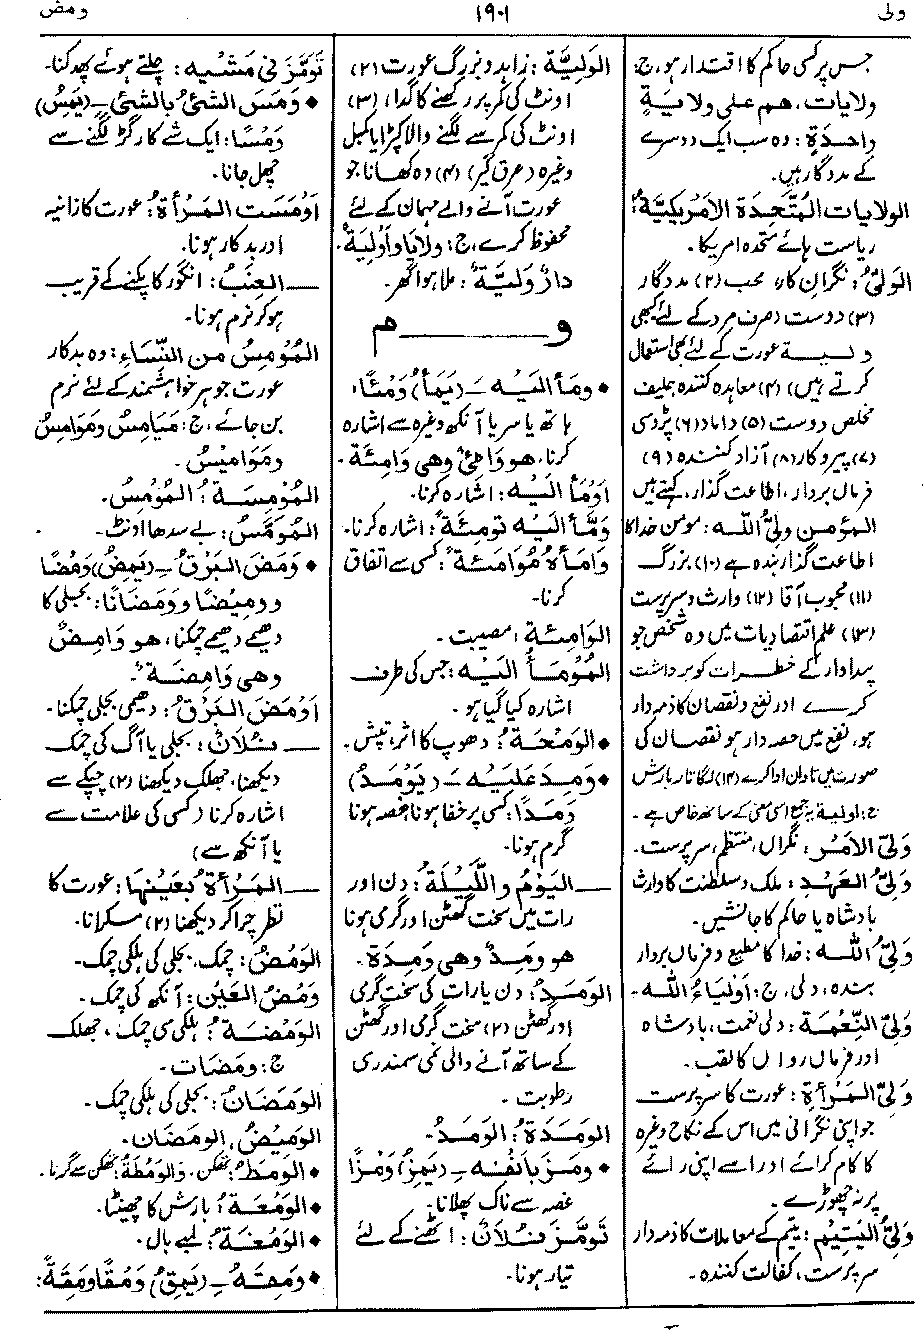 ولی
۱۹۰۱
ومض
جس پر کسی حاکم کا اقتدار ہو، ج:
ولایات، هم علی ولایةٍ
واحدةٍ: وہ سب ایک دوسرے
کے مددگار ہیں۔
الولایات المُتَّحِدَة الأمْرِیکِیَّة:
ریاست ہائے متحدہ امریکا۔
الوَلِیُّ: نگرانِ کار، محب (۲) مددگار
(۳) دوست (صرف مرد کے لئے کبھی
ولیة عورت کے لئے بھی استعمال
کرتے ہیں) (۴) معاہدہ کنندہ، حلیف
مخلص دوست (۵) داماد (۶) پڑوسی
(۷) پیروکار (۸) آزاد کنندہ (۹)
فرمان بردار، اطاعت گذار، کہتے ہیں
المؤمن ولیُّ اللہ: مومن خدا کا
اطاعت گذار بندہ ہے (۱۰) بزرگ
(۱۱) محبوب آقا (۱۲) وارث و سرپرست
(۱۳) علم اقتصادیات میں وہ شخص جو
پیداوار کے خطرات کو برداشت
کرے اور نفع و نقصان کا ذمہ دار
ہو، نفع میں حصہ دار ہو نقصان کی
صورت میں تاوان ادا کرے (۱۴) لگاتار بارش
ج: اولیة یہ جمع اسی معنی کے ساتھ خاص ہے۔
وَلِیُّ الأَمْر: نگراں، منتظم، سرپرست۔
وَلِیُّ العَهْدِ: ملک و سلطنت کا وارث
بادشاہ یا حاکم کا جانشیں۔
وَلِیُّ اللہ: خدا کا مطیع و فرماں بردار
بندہ، ولی، ج: أَوْلِیَاءُ اللہ۔
وَلِیُّ النِّعْمَة: ولی نعمت، بادشاہ
اور فرماں رواں کا لقب۔
وَلِیُّ المَرْأَةِ: عورت کا سرپرست
جو اپنی نگرانی میں اس کے نکاح وغیرہ
کا کام کرائے اور اسے اپنی رائے
پر نہ چھوڑے۔
وَلِیُّ الیَتِیْمِ: یتیم کے معاملات کا ذمہ دار
سرپرست، کفالت کنندہ۔
الوَلِیَّة: زاہد و بزرگ عورت (۲)
اونٹ کی کمر پر رکھنے کا گدا، (۳)
اونٹ کی کمر سے لگنے والا کپڑا یا کمبل
وغیرہ (عرق گیر) (۴) وہ کھانا جو
عورت آنے والے مہمان کے لئے
محفوظ کرے، ج: ولایا و أَوْلِیَةٌ۔
دارٌ وَلِیَّةٌ: ملا ہوا گھر۔
و——م
• وَمَأَ الَیْه ـِ (یَمَأُ) وَمْئًا:
ہاتھ یا سر یا آنکھ وغیرہ سے اشارہ
کرنا، هو وَامِئٌ وهی وَامِئَة۔
أَوْمَأَ الَیْه: اشارہ کرنا۔
وَمَّأَ الَیْه تَومِئَةً: اشارہ کرنا۔
وَامَأَهُ مُوَامَئَةً: کسی سے اتفاق
کرنا۔
الوَامِئَة: مصیبت۔
المُوْمَأُ الَیْه: جس کی طرف
اشارہ کیا گیا ہو۔
• الوَمْحَة: دھوپ کا اثر، تپش۔
• وَمِدَ عَلَیْه ـَ (یَوْمَدُ)
وَمَدًا: کسی پر خفا ہونا، غصہ ہونا
گرم ہونا۔
—— الیَوْمُ واللَّیْلَة: دن اور
رات میں سخت گھٹن اور گرمی ہونا
هو وَمِدٌ وهی وَمِدَة۔
الوَمَدُ: دن یا رات کی سخت گرمی
اور گھٹن (۲) سخت گرمی اور گھٹن
کے ساتھ آنے والی نمی سمندری
رطوبت۔
الوَمَدَة: الوَمَدُ۔
• وَمَزَ بأنْفِه ـِ (یَمِزُ) وَمْزًا
غصہ سے ناک پھلانا۔
تَوَمَّزَ فُلَانٌ: اٹھنے کے لئے
تیار ہونا۔
تَوَمَّزَ فی مَشْیِه: چلتے ہوئے پھدکنا۔
• وَمَسَ الشیْءُ بالشیْءِ ـِ (یَمِسُ)
وَمْسًا: ایک شے کا رگڑ لگنے سے
چھل جانا۔
أَوْمَسَت المَرْأَةُ: عورت کا زانیہ
اور بدکار ہونا۔
—— العِنَبُ: انگور کا پکنے کے قریب
ہو کر نرم ہونا۔
المُوْمِسُ من النِّسَاء: وہ بدکار
عورت جو ہر خواہشمند کے لئے نرم
بن جائے، ج: مَیَامِسُ ومَوَامِسُ
ومَوَامِیْسُ۔
المُوْمِسَة: المُوْمِسُ۔
المُوَمَّسُ: بے سدھا اونٹ۔
• وَمَضَ البَرْقُ ـِ (یَمِضُ) وَمْضًا
وومِیْضًا وومَضَانًا: بجلی کا
دھیمے دھیمے چمکنا، هو وَامِضٌ
وهی وَامِضَةٌ۔
أَوْمَضَ البَرْقُ: دھیمی بجلی چمکنا۔
—— فُلَانٌ: بجلی یا آگ کی چمک
دیکھنا، جھلک دیکھنا (۲) چپکے سے
اشارہ کرنا (کسی کی علامت سے
یا آنکھ سے)
—— المَرْأَةُ بعَیْنِها: عورت کا
نظر چرا کر دیکھنا (۲) مسکرانا۔
الوَمْضُ: چمک، بجلی کی ہلکی چمک۔
وَمْضُ العَیْن: آنکھ کی چمک۔
الوَمْضَة: ہلکی سی چمک، جھلک
ج: ومَضَات۔
الوَمَضَانُ: بجلی کی ہلکی چمک۔
الوَمِیْضُ: الومَضَان۔
• الوَمْطُ: تھکن۔ وَالوَمْطَةُ: تھکن سے گرنا۔
• الوَمْعَة: بارش کا چھینٹا۔
• الوَمْغَة: لمبے بال۔
• وَمِقَهُ ـِ (یَمِقُ) وَمْقًا ومِقَةً: